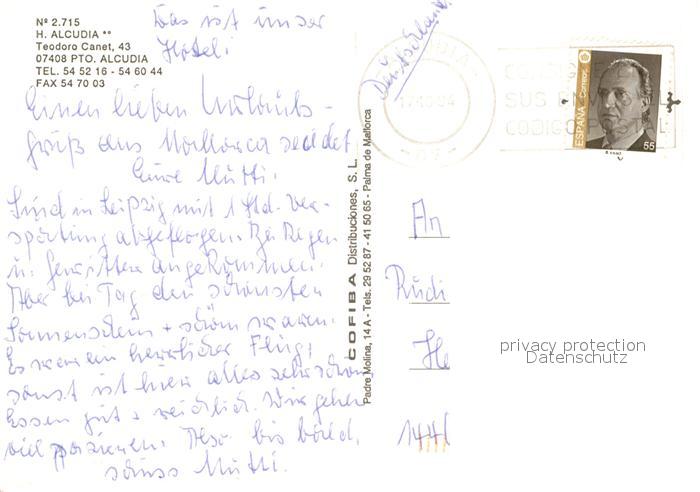 Nº 2.715
H. ALCUDIA **
Teodoro Canet, 43
07408 PTO. ALCUDIA
TEL. 54 52 16 - 54 60 44
FAX 54 70 03
Das ist unser
Hotel.
Einen lieben Urlaubs-
gruß aus Mallorca sendet
Eure Mutti.
Sind in Leipzig mit 1 Std. Ver-
spätung abgeflogen. Bei Regen
u. Gewitter angekommen.
Aber bei Tag den schönsten
Sonnenschein + schön warm.
Es war ein herrlicher Flug,
sonst ist hier alles sehr schön
Essen gut + reichlich. Wir gehen
viel spazieren. Also bis bald,
Mutti.
COFIBA Distribuciones, S. L.
Padre Molina, 14 A - Tels. 29 52 87 - 41 50 65 - Palma de Mallorca
Deutschland
SUS
CODIGO POSTAL
ESPAÑA Correos
55
An
Rudi
He
144
privacy protection
Datenschutz